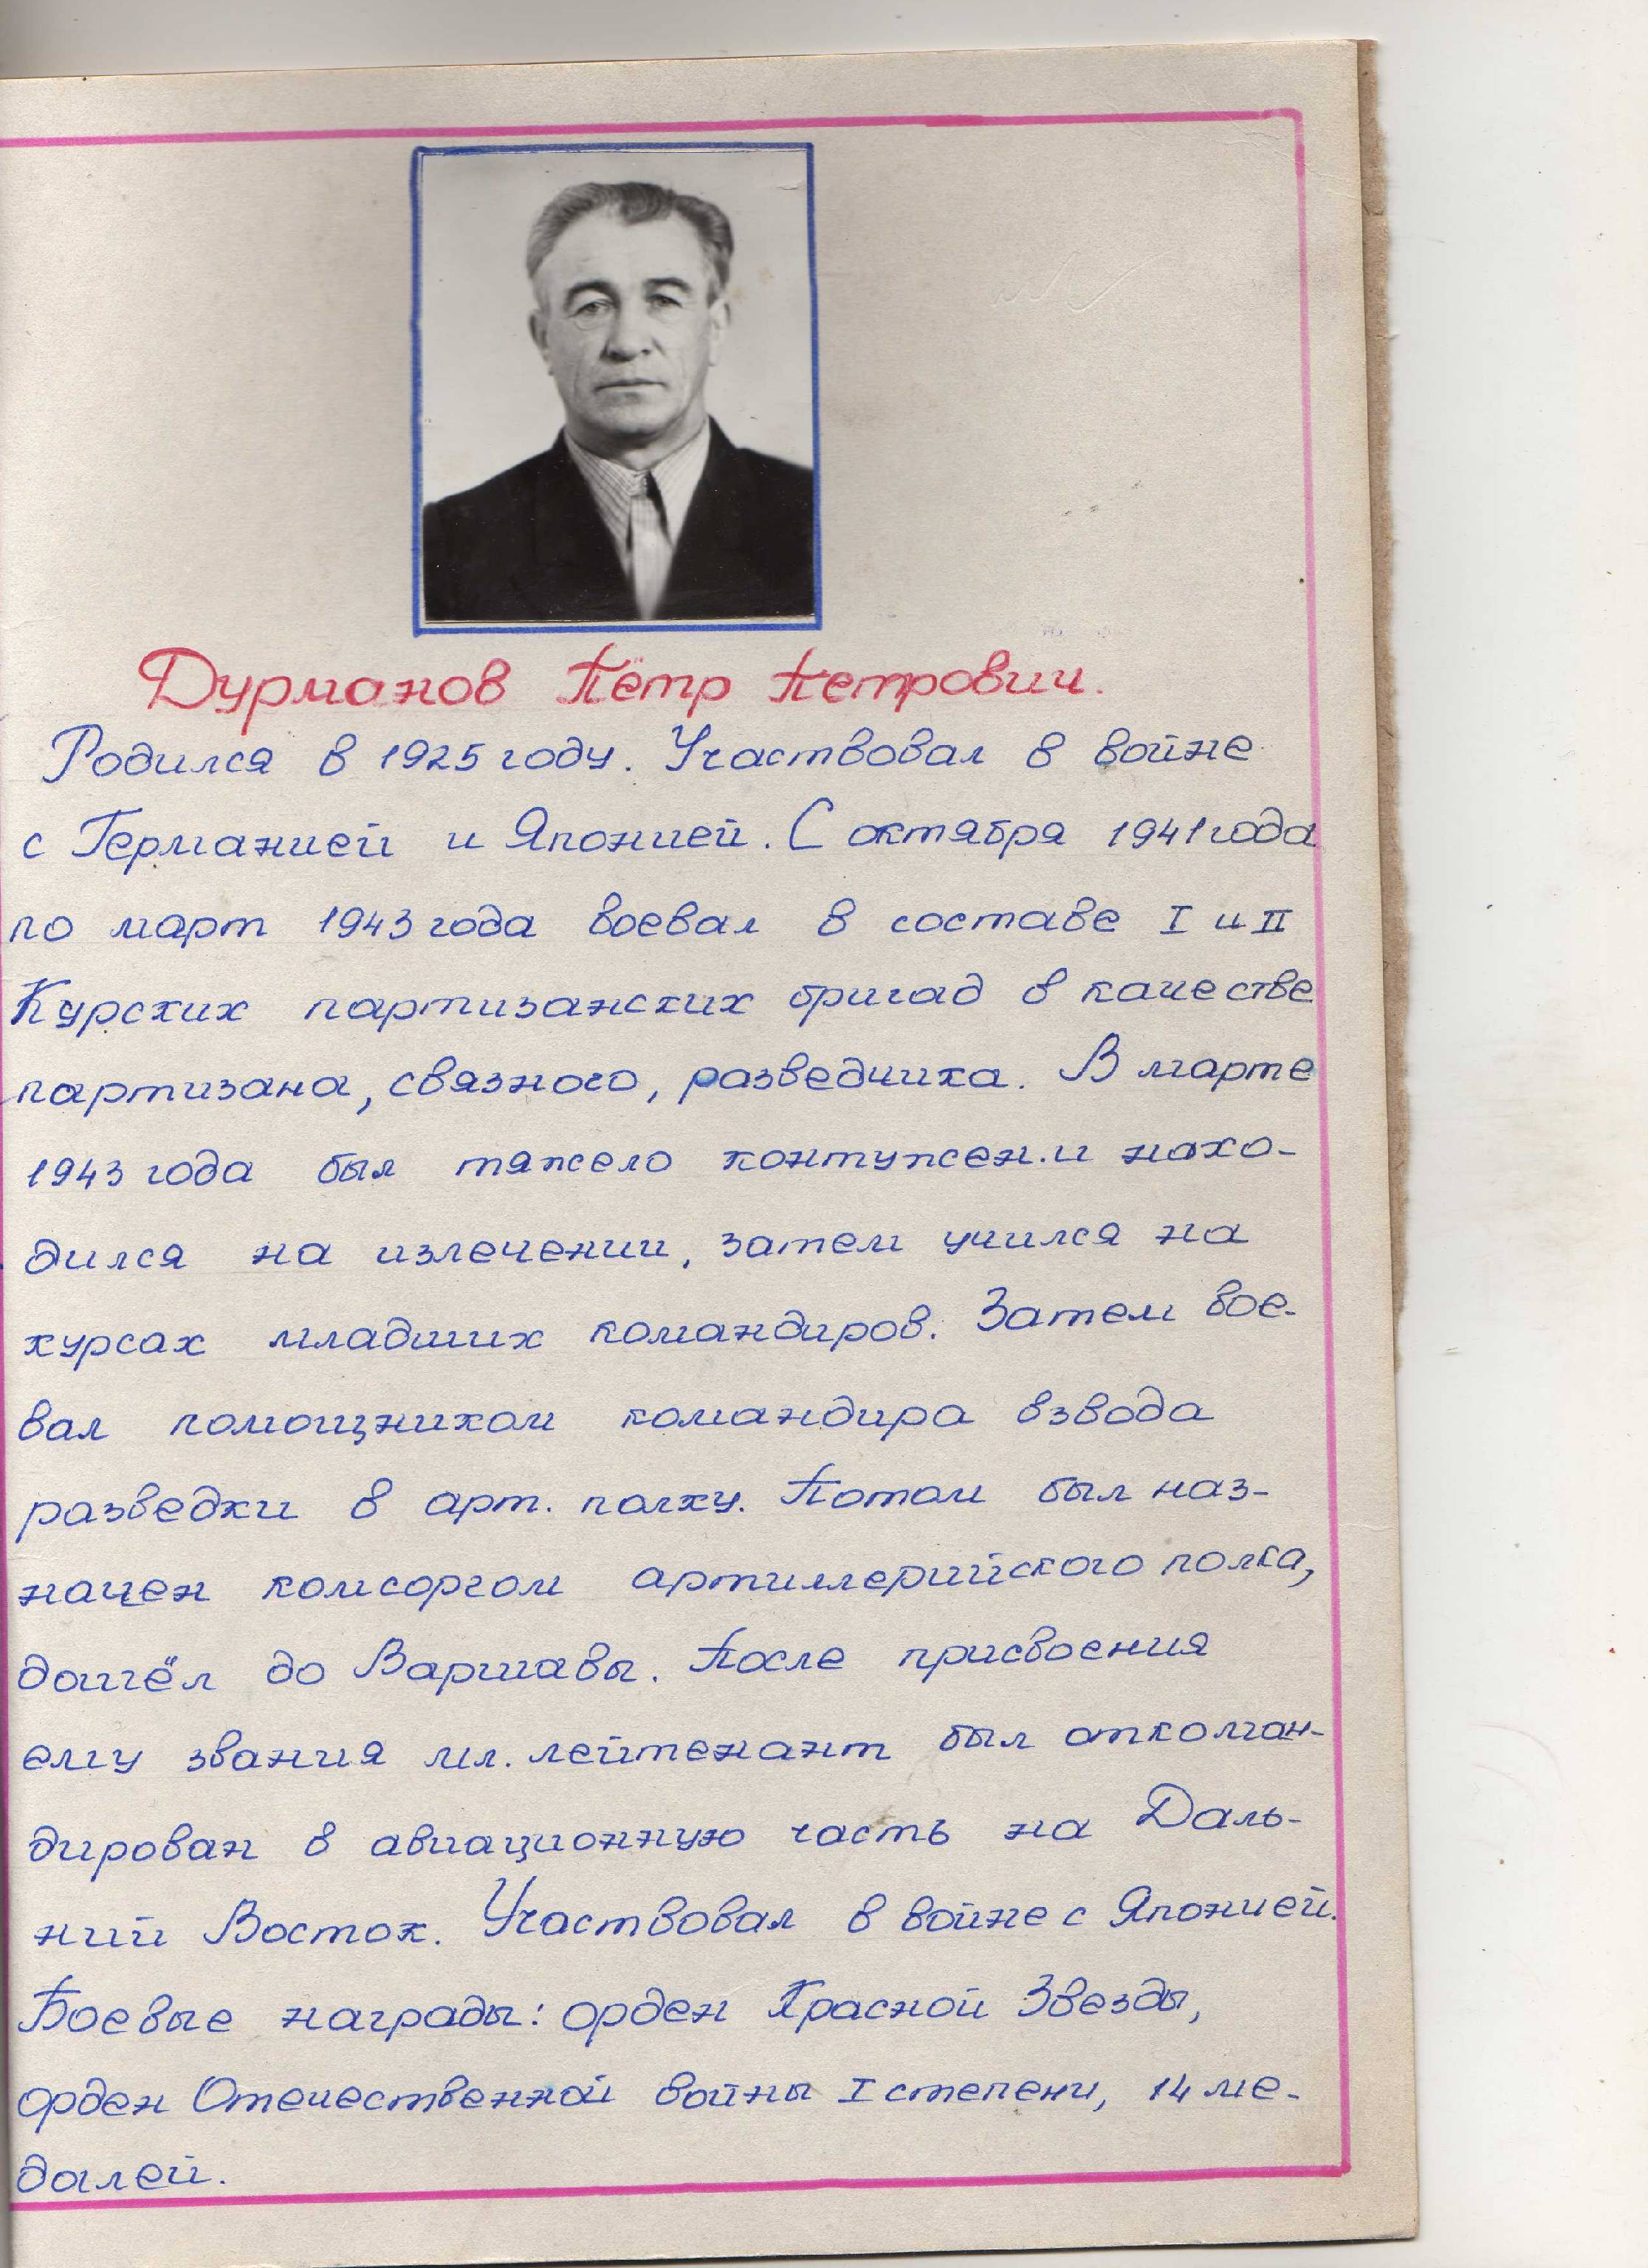 Дурманов Пётр Петрович.
Родился в 1925 году. Участвовал в войне
с Германией и Японией. С октября 1941 года
по март 1943 года воевал в составе I и II
Курских партизанских бригад в качестве
партизана, связного, разведчика. В марте
1943 года был тяжело контужен и нахо-
дился на излечении, затем учился на
курсах младших командиров. Затем вое-
вал помощником командира взвода
разведки в арт. полку. Потом был наз-
начен комсоргом артиллерийского полка,
дошёл до Варшавы. После присвоения
ему звания мл. лейтенант был откоман-
дирован в авиационную часть на Даль-
ний Восток. Участвовал в войне с Японией.
Боевые награды: орден Красной Звезды,
орден Отечественной войны I степени, 14 ме-
далей.